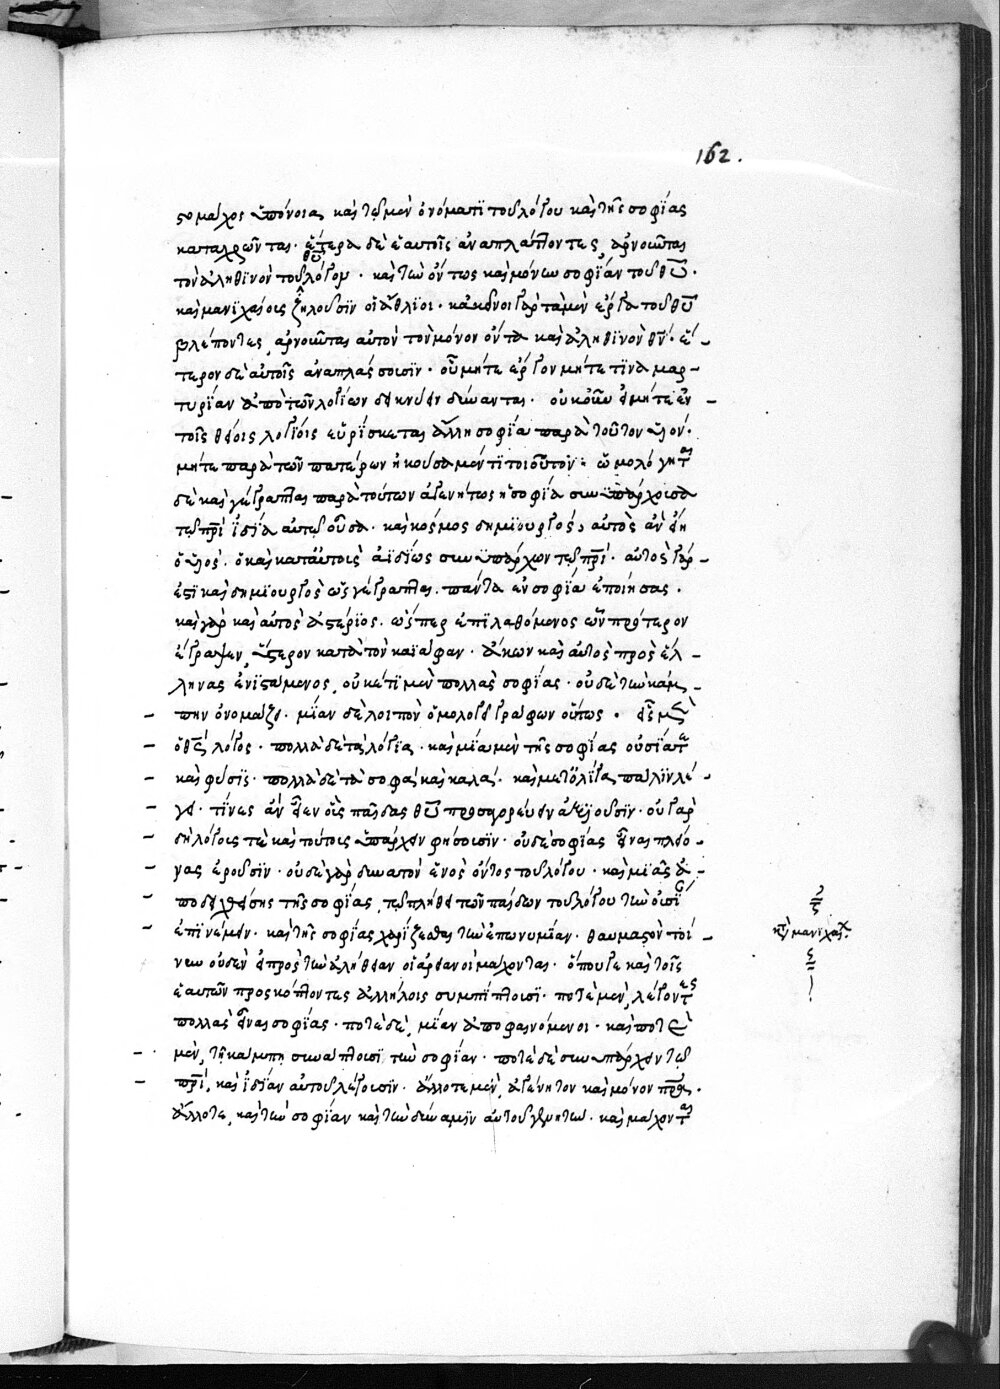 162.
στομαχος ὑπόνοια καὶ τῷ μὲν ὀνόματι τοῦ λόγου καὶ τῆς σοφίας
καταχρῶνται. ἕτερα δὲ ἑαυτοῖς ἀναπλάττοντες, ἀρνοῦνται
τὸν ἀληθινὸν τοῦ θῦ λόγον. καὶ τὴν ὄντως καὶ μόνην σοφίαν τοῦ θῦ.
καὶ μανιχαίοις ζηλοῦσιν οἱ ἄθλιοι. κἀκεῖνοι γὰρ τὰ μὲν ἔργα τοῦ θῦ
βλέποντες, ἀρνοῦνται αὐτὸν τὸν μόνον ὄντα καὶ ἀληθινὸν θν̅. ἕ-
τερον δὲ αὐτοῖς ἀναπλάσσουσιν. οὗ μήτε ἔργον μήτε τινὰ μαρ-
τυρίαν ἀπὸ τῶν λογίων δεικνύειν δύνανται. οὐκοῦν εἰ μήτε ἐν
τοῖς θείοις λογίοις εὑρίσκεται ἄλλη σοφία παρὰ τοῦτον υἱόν.
μήτε παρὰ τῶν πατέρων ἠκούσαμέν τι τοιοῦτον. ὡμολόγηται
δὲ καὶ γέγραπται παρὰ τούτων ἀγενήτως ἡ σοφία συνυπάρχουσα
τῷ πρι̅ ἰδία αὐτῷ οὖσα. καὶ κόσμος δημιουργός, αὐτὸς ἂν εἴη
ὁ υἱός. ὁ καὶ κατ' αὐτοὺς ἀϊδίως συνυπάρχων τῷ πρι̅. αὐτὸς γάρ
ἐστι καὶ δημιουργὸς ὡς γέγραπται. πάντα ἐν σοφία ἐποίησας.
καὶ γὰρ καὶ αὐτὸς ἀστέριος. ὥσπερ ἐπιλαθόμενος ὧν πρότερον
ἔγραψεν, ὕστερον κατὰ τὸν καϊάφαν. ἄκων καὶ αὐτὸς πρὸς ἕλ-
ληνας ἐνιστάμενος, οὐκέτι μὲν πολλὰς σοφίας. οὐδὲ τὴν κάμ-
πην ὀνομάζει. μίαν δὲ λοιπὸν ὁμολογεῖ γράφων οὕτως. εἷς μὲν
ὁ θς̅ λόγος. πολλὰ δὲ τὰ λόγια. καὶ μία μὲν τῆς σοφίας οὐσία τε
καὶ φύσις. πολλὰ δὲ τὰ σοφὰ καὶ καλά. καὶ μετ' ὀλίγα πάλιν λέ-
γει. τίνες ἂν εἶεν οὓς παῖδας θῦ προσαγορεύειν ἀξιοῦσιν. οὐ γὰρ
δὴ λόγους τε καὶ τούτους ὑπάρχειν φήσουσιν. οὐδὲ σοφίας εἶναι πλείο-
νας ἐροῦσιν. οὐδὲ γὰρ δυνατὸν ἑνὸς ὄντος τοῦ λόγου. καὶ μιᾶς ἀ-
ποδειχθείσης τῆς σοφίας, τῷ πλήθει τῶν παίδων τοῦ λόγου τὴν οὐσί
ἐπινέμειν. καὶ τῆς σοφίας χαρίζεσθαι τὴν ἐπωνυμίαν. θαυμαστὸν τοί-
νυν οὐδὲν εἰ πρὸς τὴν ἀλήθειαν οἱ ἀρειανοὶ μάχονται. ὅπου γε καὶ τοῖς
ἑαυτῶν προσκόπτοντες ἀλλήλοις συμπίπτουσι. ποτὲ μὲν, λέγοντες
πολλὰς εἶναι σοφίας. ποτὲ δὲ, μίαν ἀποφαινόμενοι. καὶ ποτὲ
μὲν, τῇ κάμπῃ συνάπτουσι τὴν σοφίαν. ποτὲ δὲ συνυπάρχειν τῷ
πρι̅, καὶ ἰδίαν αὐτοῦ λέγουσιν. ἄλλοτε μὲν, ἀγένητον καὶ μόνον πρα̅.
ἄλλοτε, καὶ τὴν σοφίαν καὶ τὴν δύναμιν αὐτοῦ ἀγένητον. καὶ μάχονται
μανιχαι